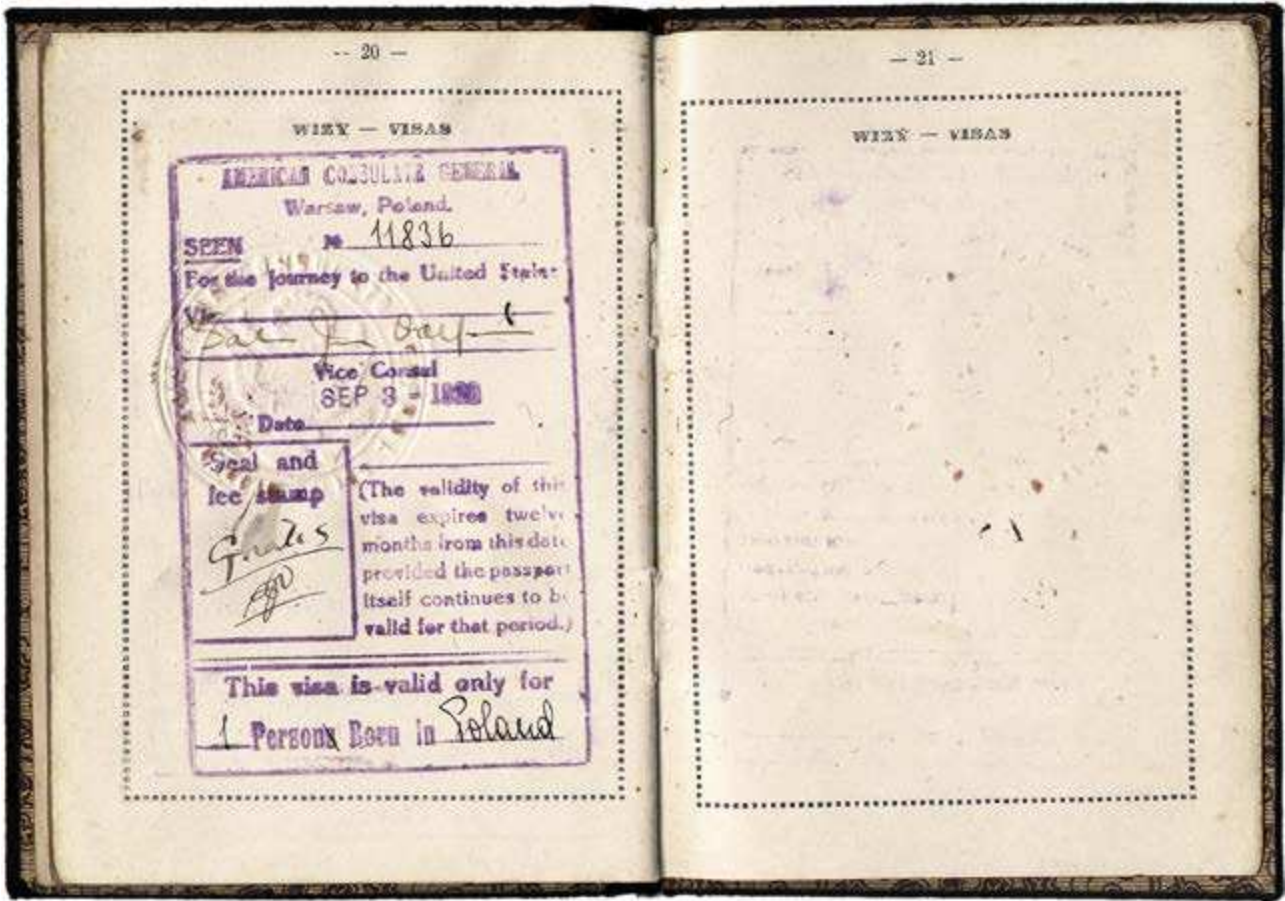 -- 20 —
WIZY — VISAS
AMERICAN CONSULATE GENERAL
Warsaw, Poland.
SEEN № 11836
For the Journey to the United States
Vice Consul
SEP 3 - 
Date
Seal and
fee stamp
Gratis
(The validity of this
visa expires twelve
months from this date
provided the passport
itself continues to be
valid for that period.)
This visa is valid only for
1 Persons Born in Poland
— 21 —
WIZY — VISAS